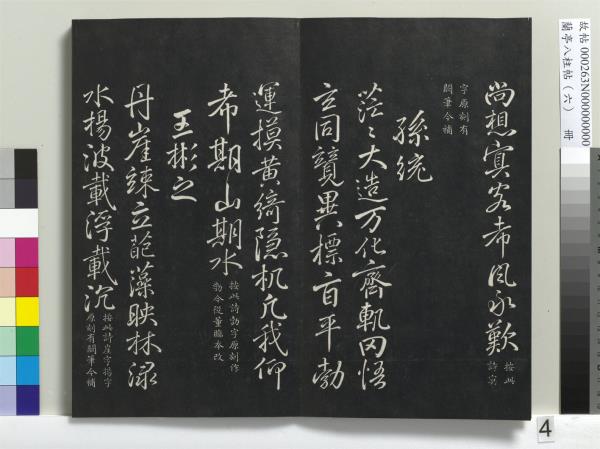 故帖 000263N000000000
蘭亭八柱帖（六） 冊
尚想冥客希風永歎
按此
詩冥
字原刻有
闕筆今補
孫統
茫〻大造万化齊軌罔悟
玄同競異標旨平勃
運摸黃綺隱机凡我仰
希期山期水
按此詩勃字原刻作
勃今從董臨本改
王彬之
丹崖竦立葩藻映林淥
水揚波載浮載沉
按此詩崖字揚字
原刻有闕筆今補
4